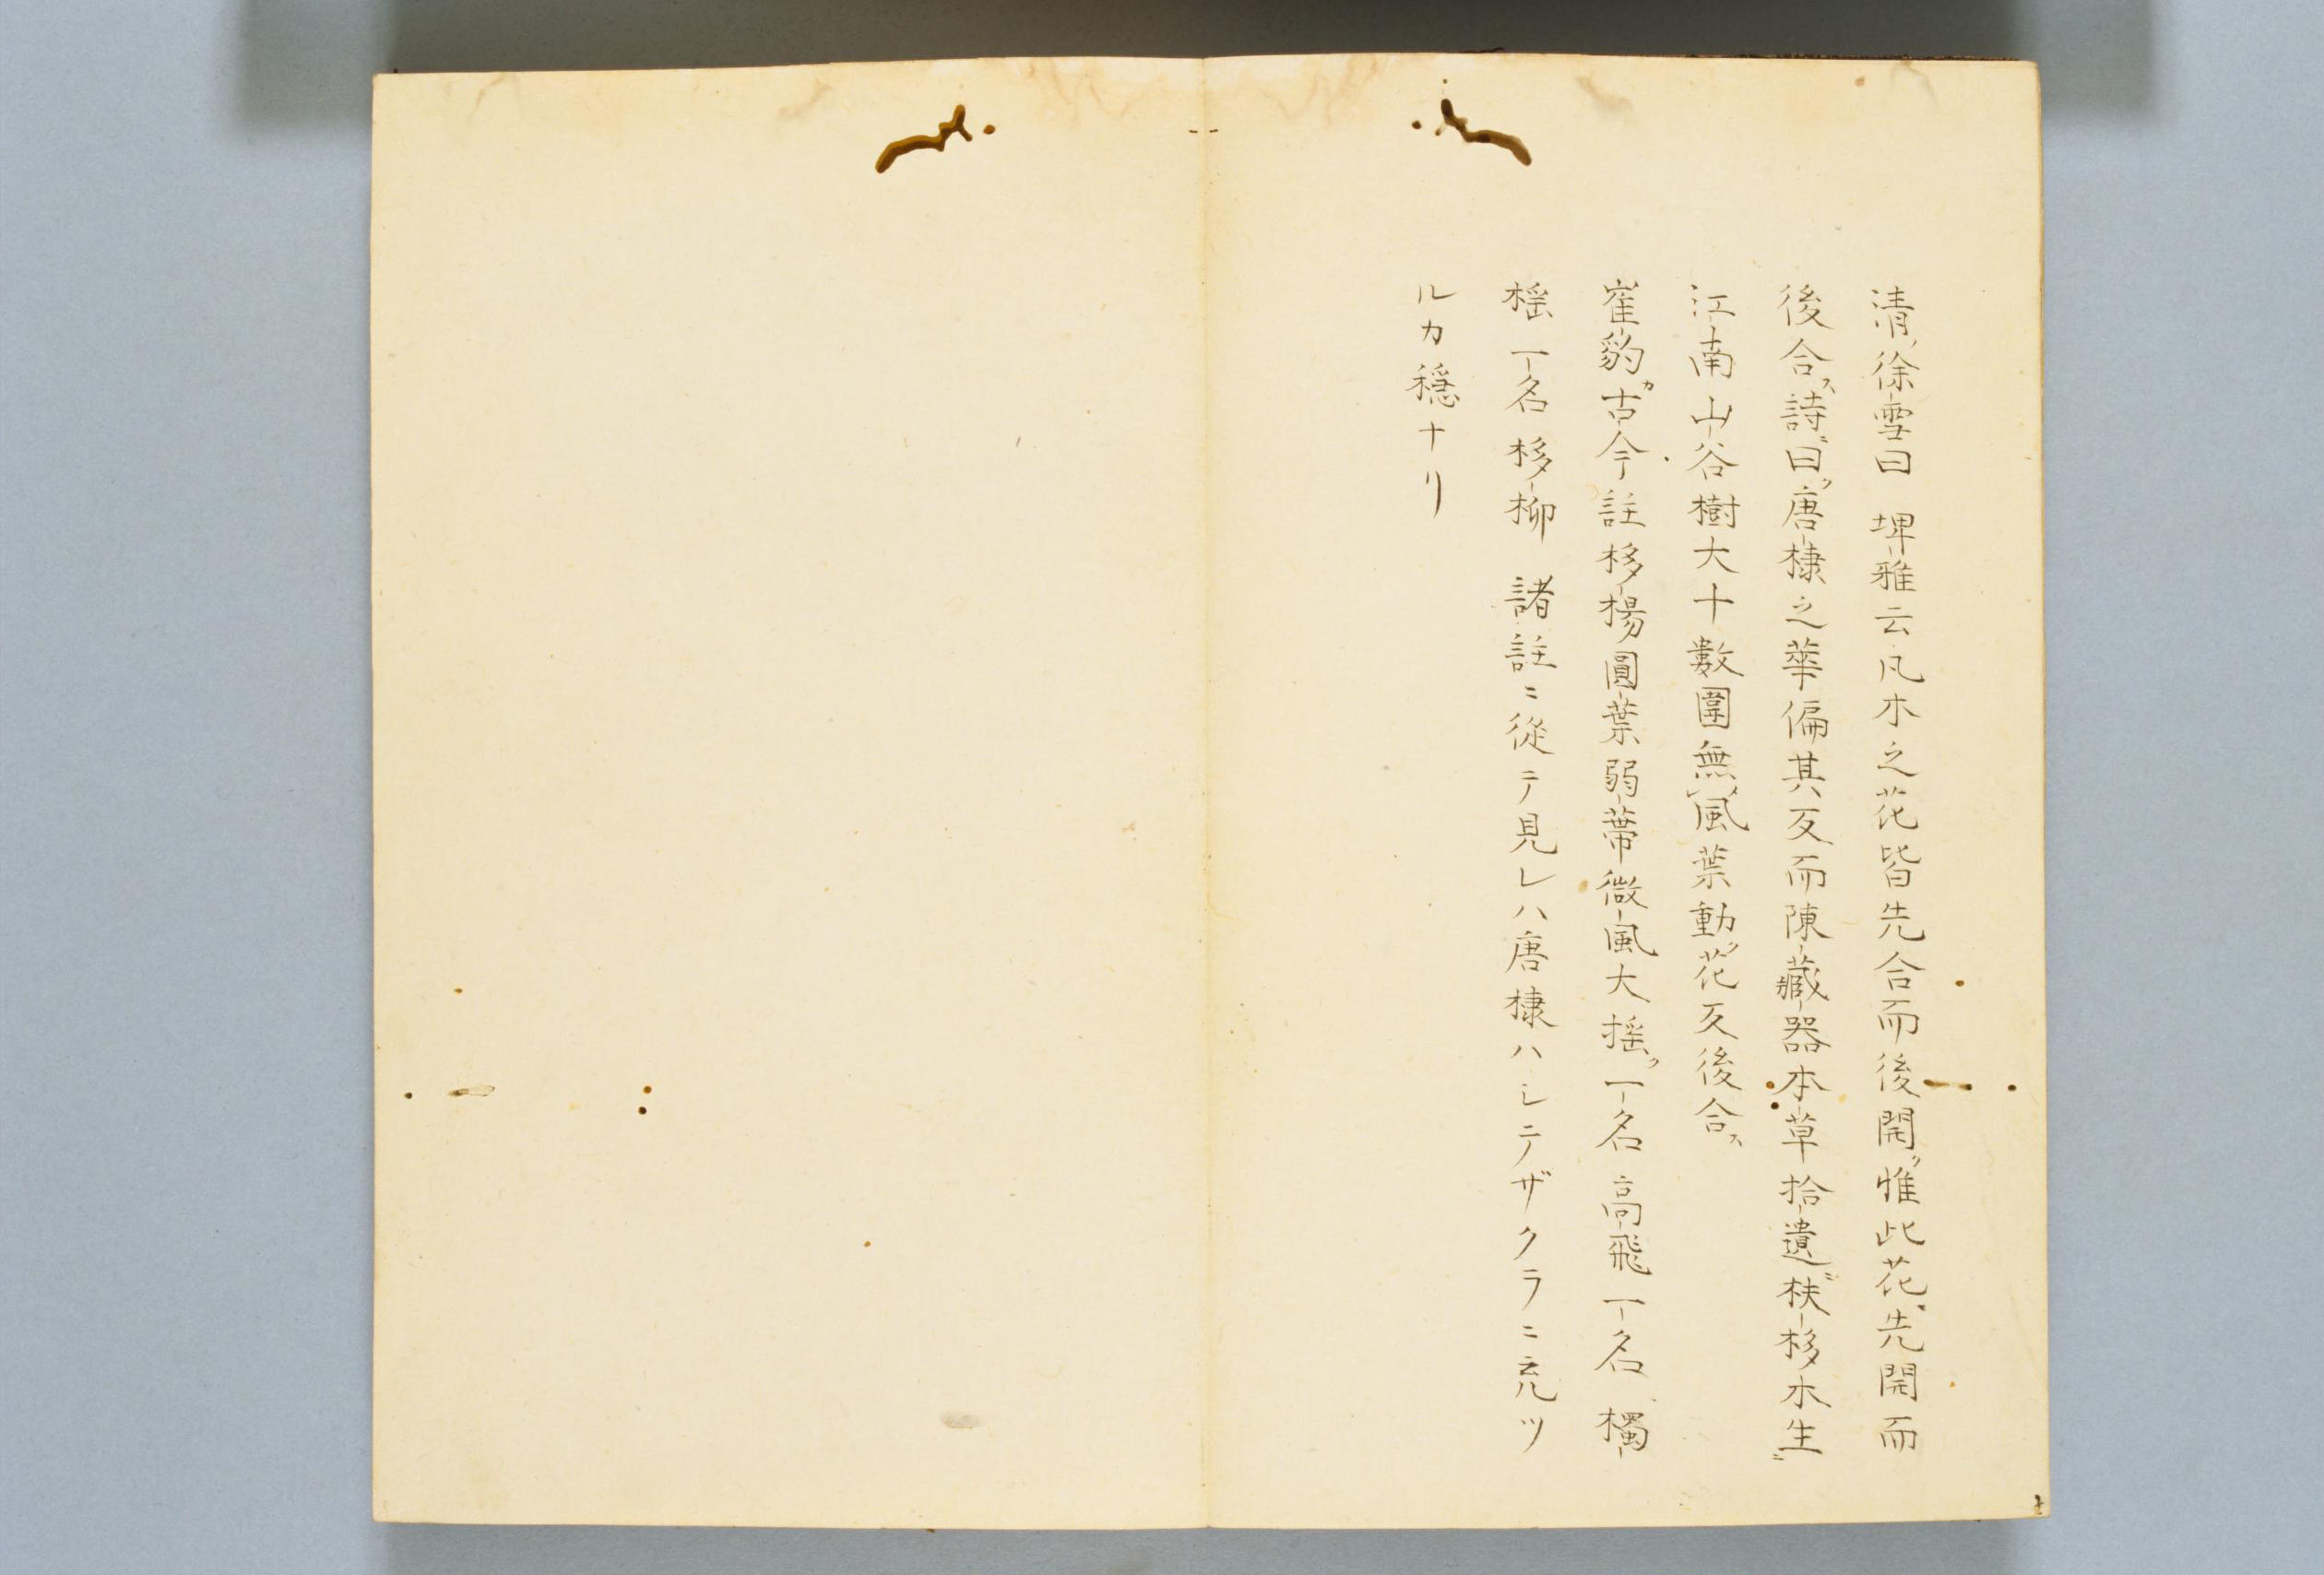 清ノ徐雪曰 埤雅云凡木之花皆先合而後開ク惟此花先開而
後合ス詩ニ曰ク唐棣之華偏其反而陳藏器本草拾遺ニ枎栘木生ニ
江南山谷樹大十數圍無メ風葉動ク花反後合ス
崔豹カ古今註栘楊圓葉弱蔕微風大搖ク一名高飛一名獨
榣一名栘柳 諸註ニ從テ見レハ唐棣ハシテザクラニ充ツ
ルカ穏ナリ